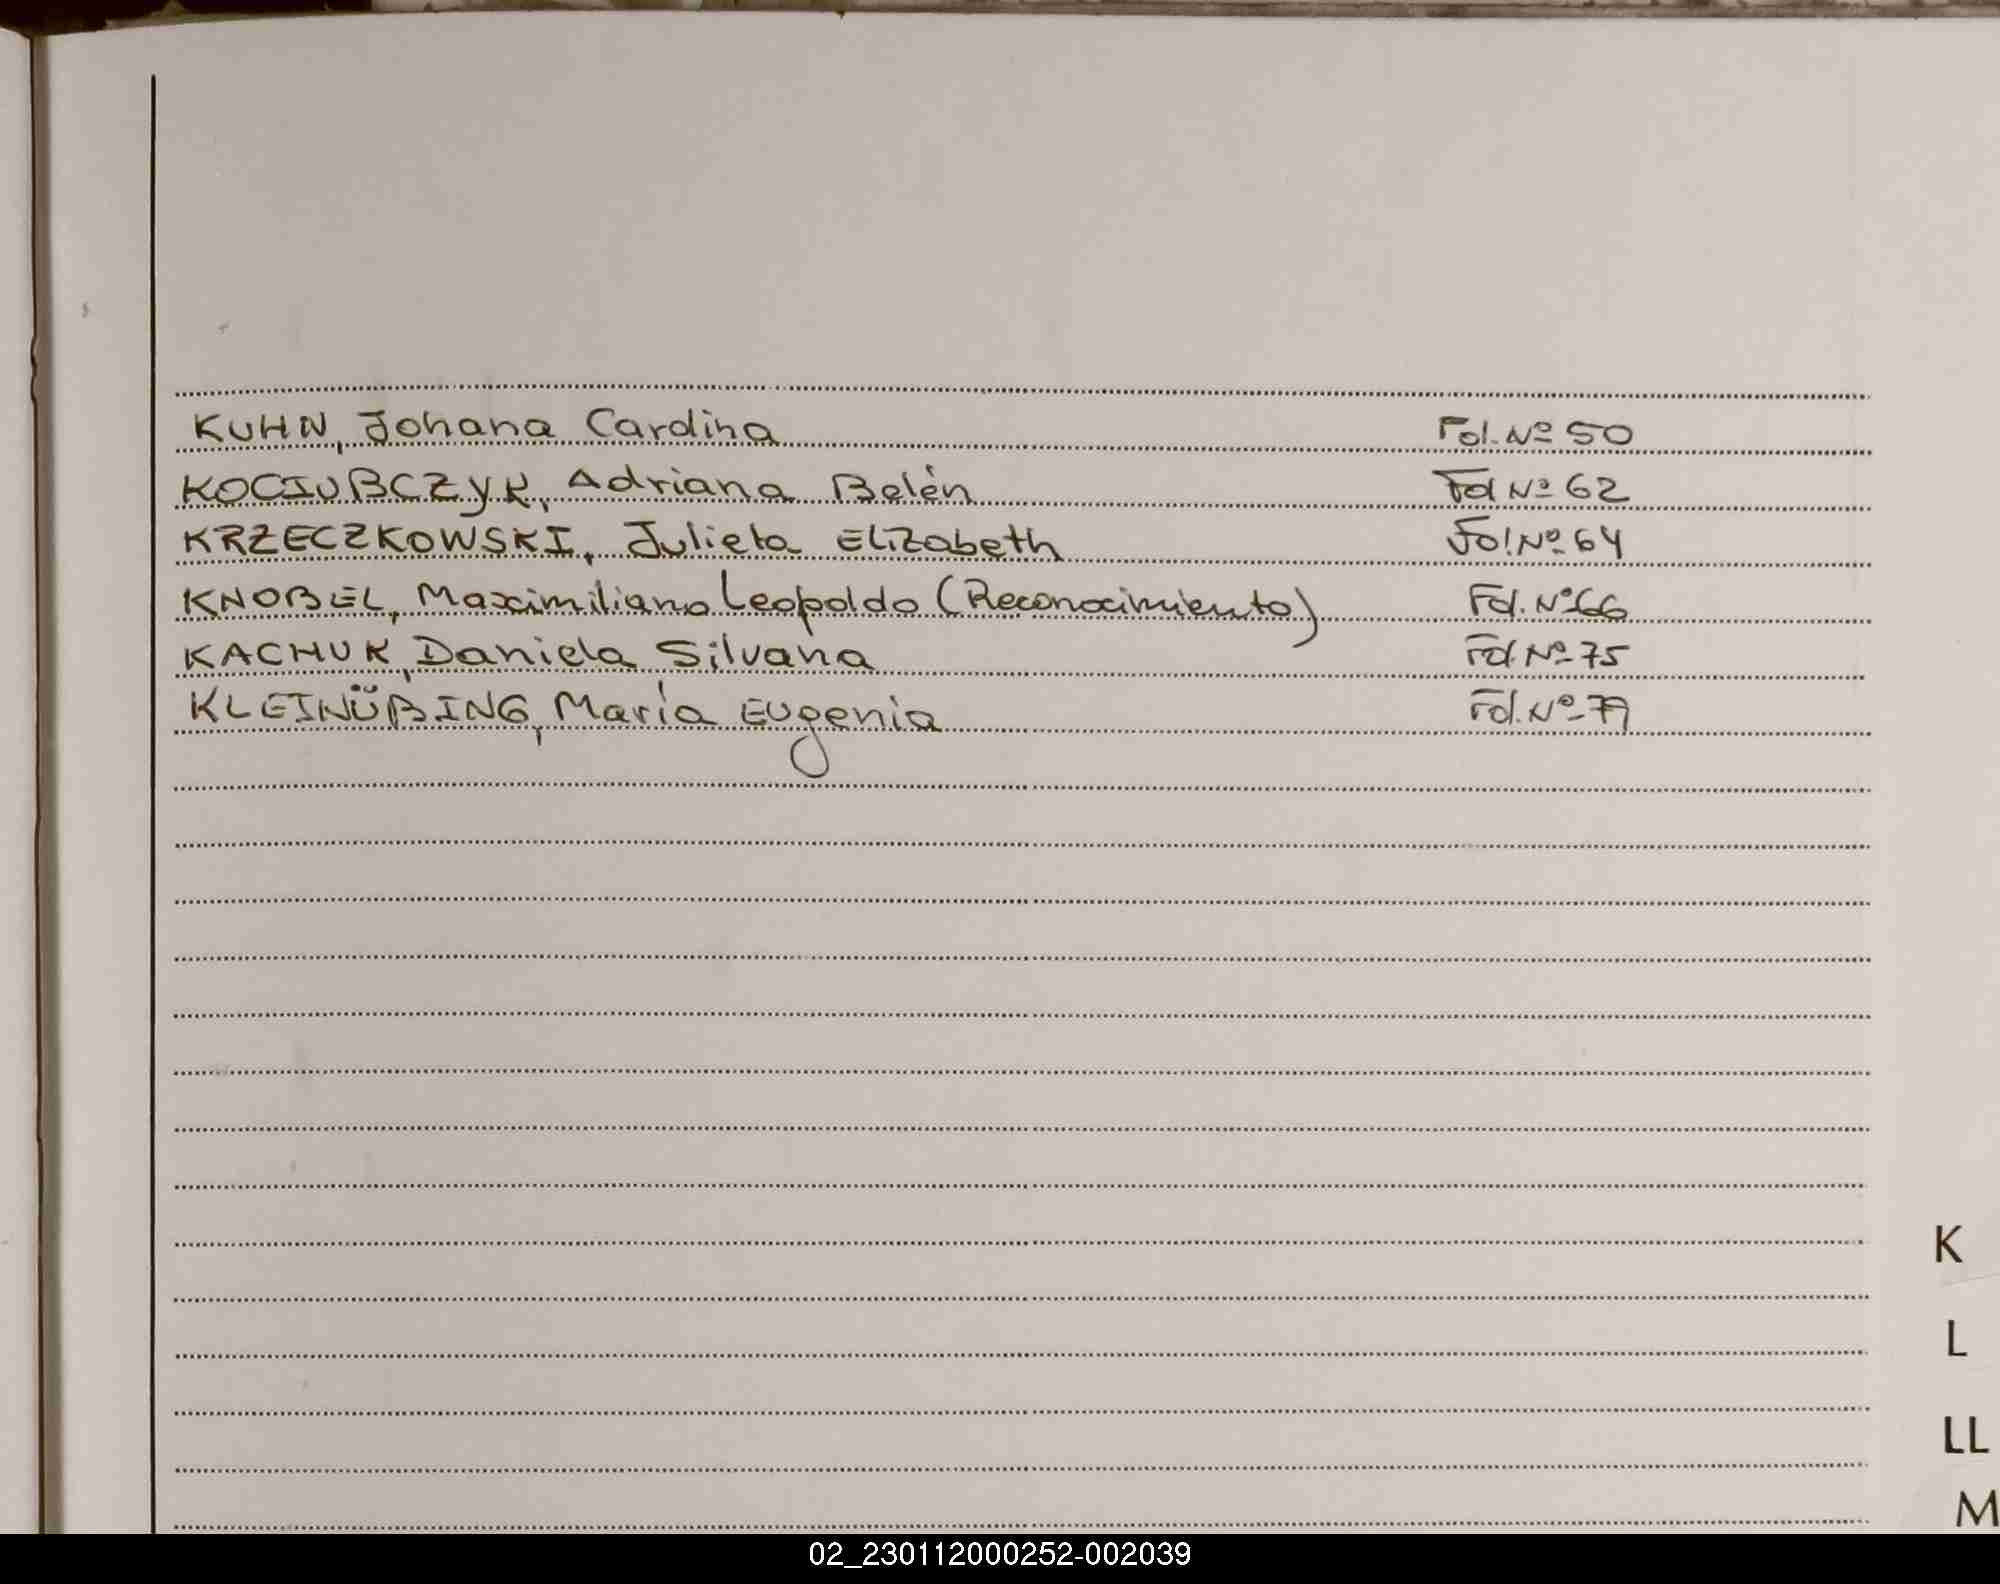 KUHN, Johana Carolina Fol. Nº 50
KOCIUBCZYK, Adriana Belén Fol Nº 62
KRZECZKOWSKI, Julieta Elizabeth Fol Nº 64
KNOBEL, Maximiliano Leopoldo (Reconocimiento) Fol. Nº 66
KACHUK, Daniela Silvana Fol. Nº 75
KLEINÜBING, María Eugenia Fol. Nº 79
K
L
LL
M
02_230112000252-002039